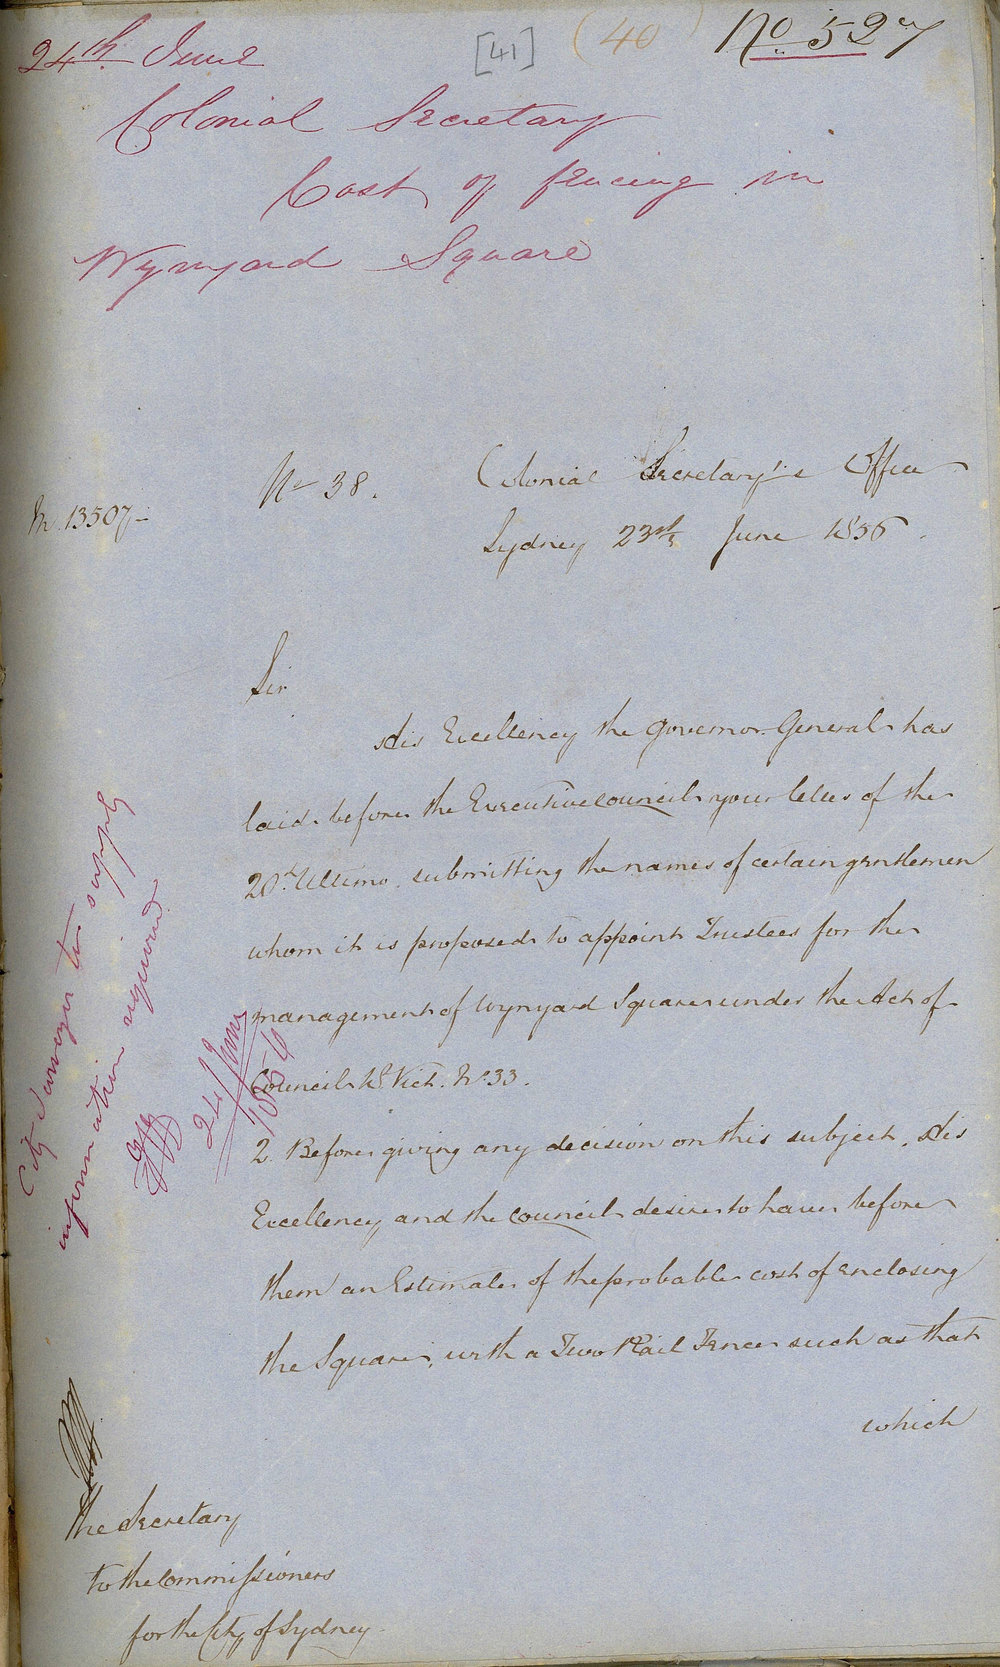 24th June
[41]
(40)
No 527
Colonial Secretary
Cost of fencing in
Wynyard Square
No 38.
Colonial Secretary's Office
M. 13507
Sydney 23rd June 1856.
Sir
His Excellency the Governor General has
laid before the Executive Council your letter of the
20th Ultimo, submitting the names of certain gentlemen
whom it is proposed to appoint Trustees for the
management of Wynyard Square under the Act of
Council 18 Vict. No 33.
2. Before giving any decision on this subject, His
Excellency and the Council desire to have before
them an Estimate of the probable cost of enclosing
the Square, with a Two Rail Fence such as that
which
City Surveyor to supply
information required
24/June
1856
The Secretary
to the Commissioners
for the City of Sydney